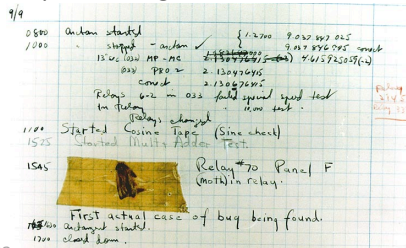 9/9
0800 antan started
1000 " stopped - antan ✓ { 1.2700 9.037 847 025
9.037 846 795 correct
13"uc (032) MP-MC 4.615925059(-2)
(033) PRO 2 2.130476415
correct 2.130676415
Relays 6-2 in 033 failed special speed test
in relay 10,000 test.
Relays changed
1100 Started Cosine Tape (Sine check)
1525 Started Mult+Adder Test.
1545 Relay #70 Panel F
(moth) in relay.
First actual case of bug being found.
antangent started.
1700 closed down.